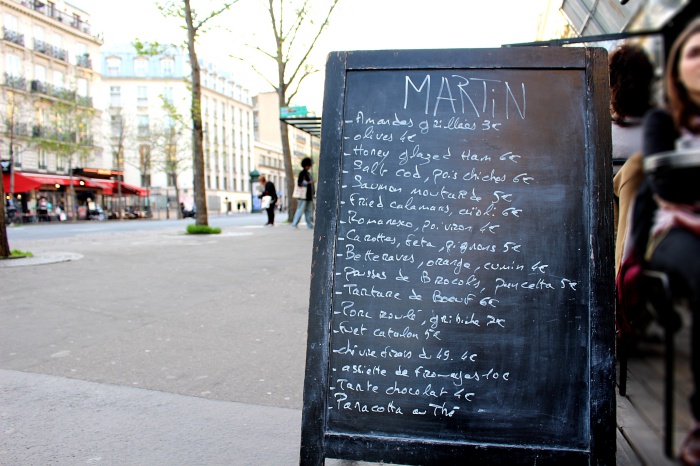 MARTIN
- Amandes grillées 3€
- olives 4€
- Honey glazed Ham 6€
- Salt cod, pois chiches 6€
- Saumon moutarde 5€
- Fried calamars, aïoli 6€
- Romanesco, poivron 4€
- Carottes, feta, pignons 5€
- Betteraves, orange, cumin 4€
- pousses de Brocolis, pancetta 5€
- Tartare de Boeuf 6€
- Porc roulé, gribiche 7€
- Fuet catalan 5€
- chèvre frais 4€
- assiette de fromages 10€
- Tarte chocolat 4€
- Panacotta au Thé